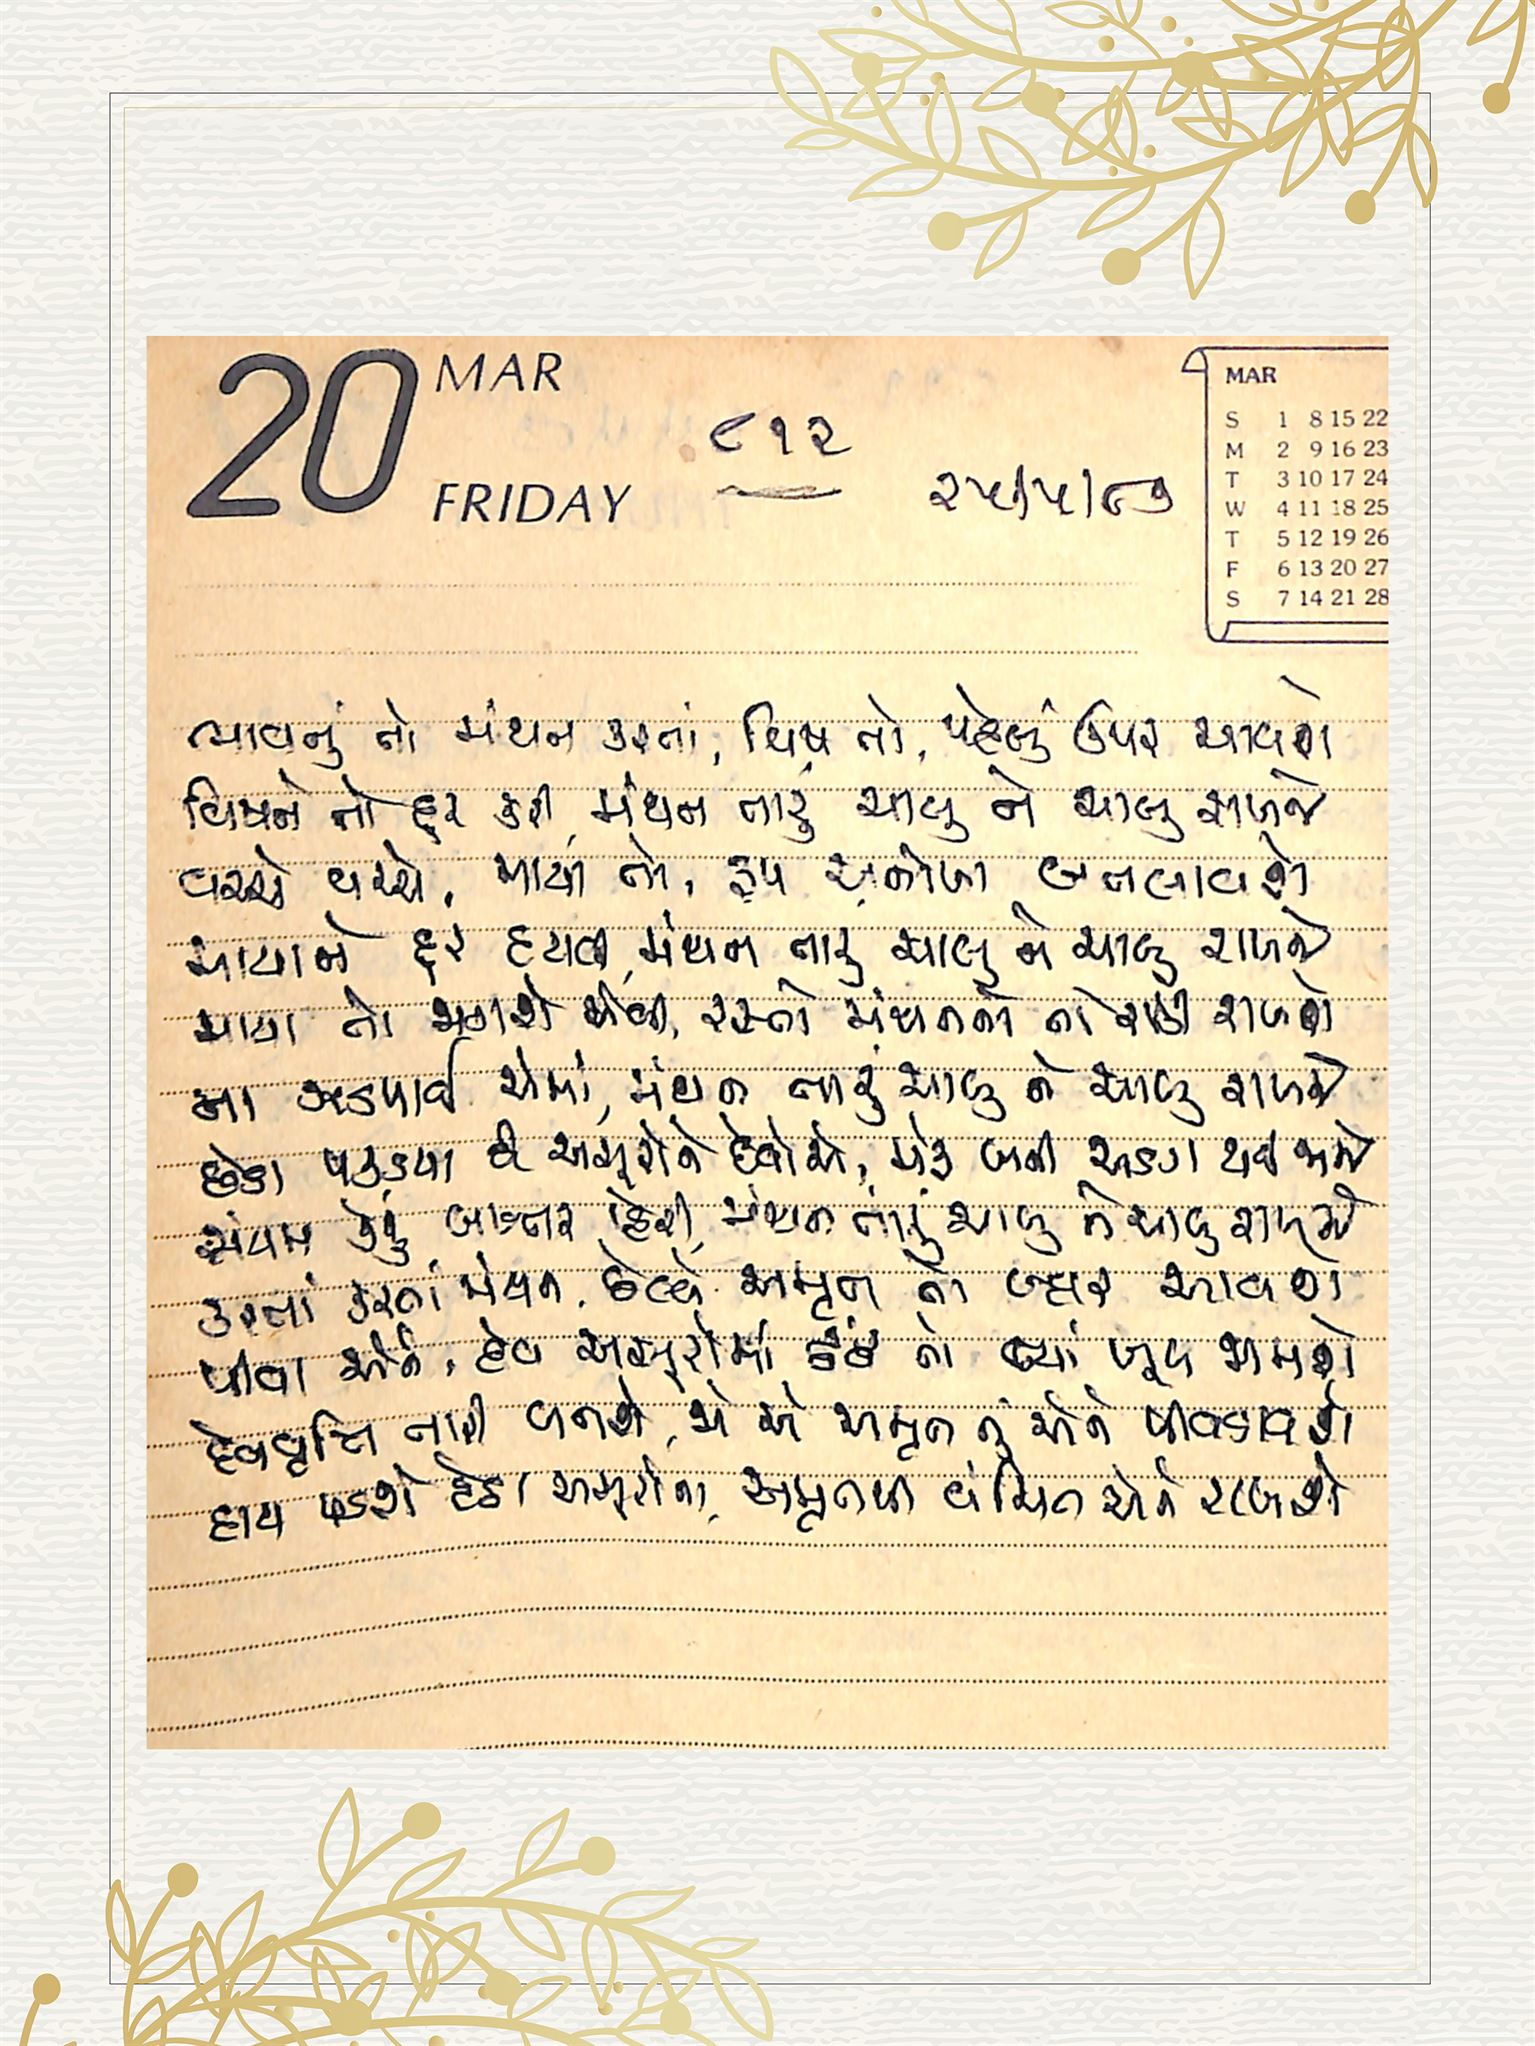 20 MAR
FRIDAY
૮૧૨
૨૫/૫/૮૭
MAR
S 1 8 15 22
M 2 9 16 23
T 3 10 17 24
W 4 11 18 25
T 5 12 19 26
F 6 13 20 27
S 7 14 21 28
ભાવનું તો મંથન કરતાં, વિષ તો, પહેલું ઉપર આવશે
વિષને તો દૂર કરી, મંથન તારું ચાલુ ને ચાલુ રાખજે
વચ્ચે વચ્ચે, માયા તો, રૂપ અનોખા બતલાવશે
માયાને દૂર હટાવી, મંથન તારું ચાલુ ને ચાલુ રાખજે
માયા તો મળશે એવી, રસ્તો મંથનનો તો રોકી રાખશે
ના અટવાઈ એમાં, મંથન તારું ચાલુ ને ચાલુ રાખજે
છેડા પકડયા છે અસૂરોને દેવોએ, મેરૂ બની અડગ થઈ જાજે
સંયમ કેરું બખ્તર પહેરી, મંથન તારું ચાલુ ને ચાલુ રાખજે
કરતાં કરતાં મંથન, છેલ્લે અમૃત તો બહાર આવશે
પીવા એને, દેવ અસૂરોમાં દ્વંદ્વ તો ત્યાં ખૂબ જામશે
દેવવૃત્તિ તારી બનશે, જો એ અમૃત તું એને પીવડાવશે
હાથ પડશે હેઠા અસૂરોના, અમૃતથી વંચિત એને રાખશે